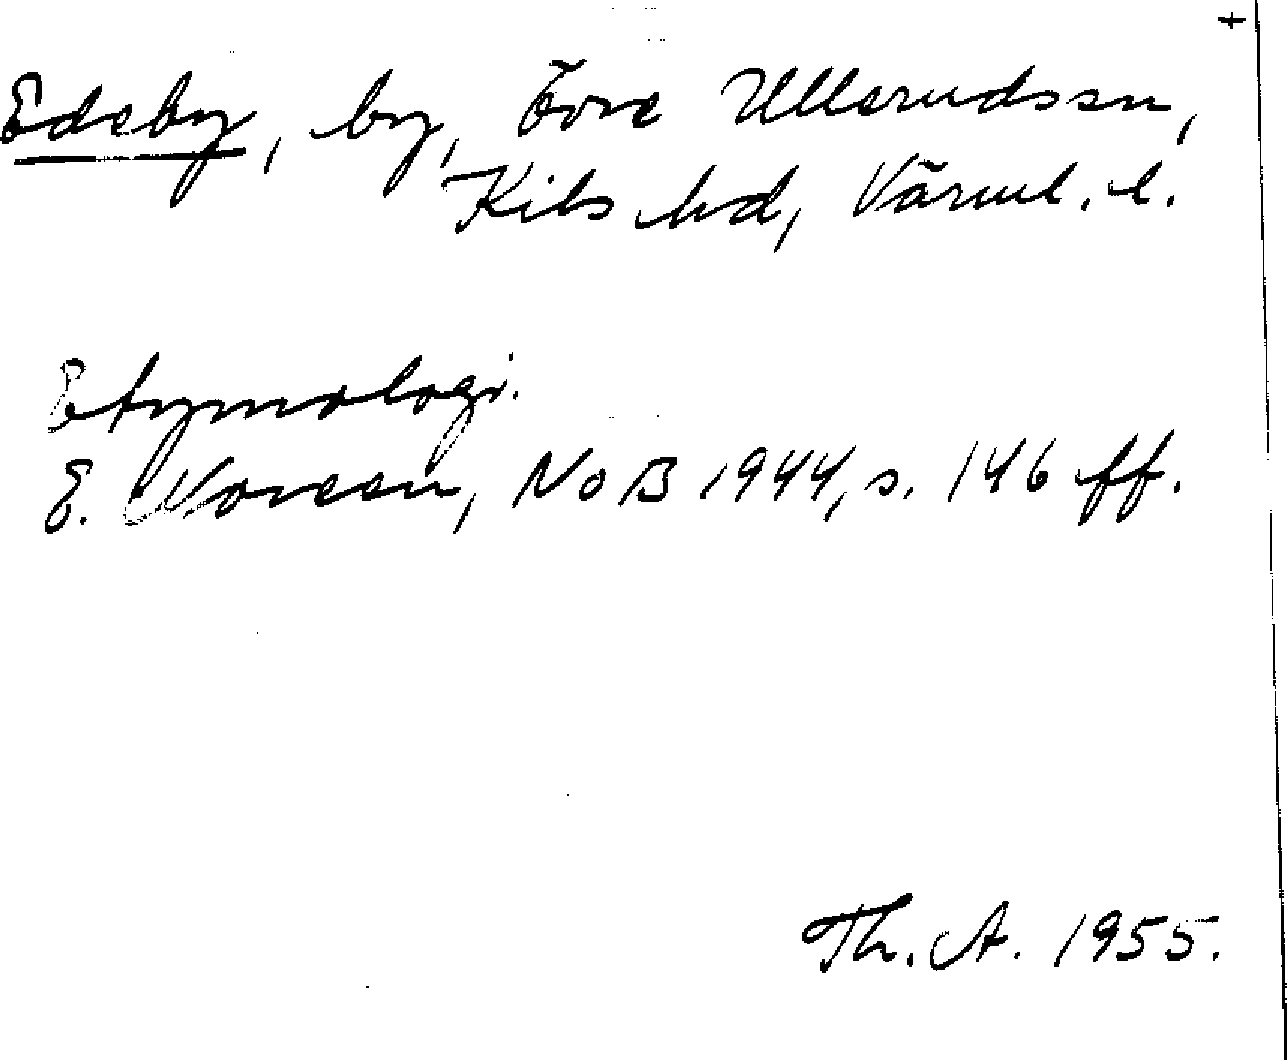 +
Edeby, by, Övre Ullerudssn,
Kils hd, Värml. l.
Etymologi.
E. Noreen, NoB 1944, s. 146 ff.
Th. A. 1955.